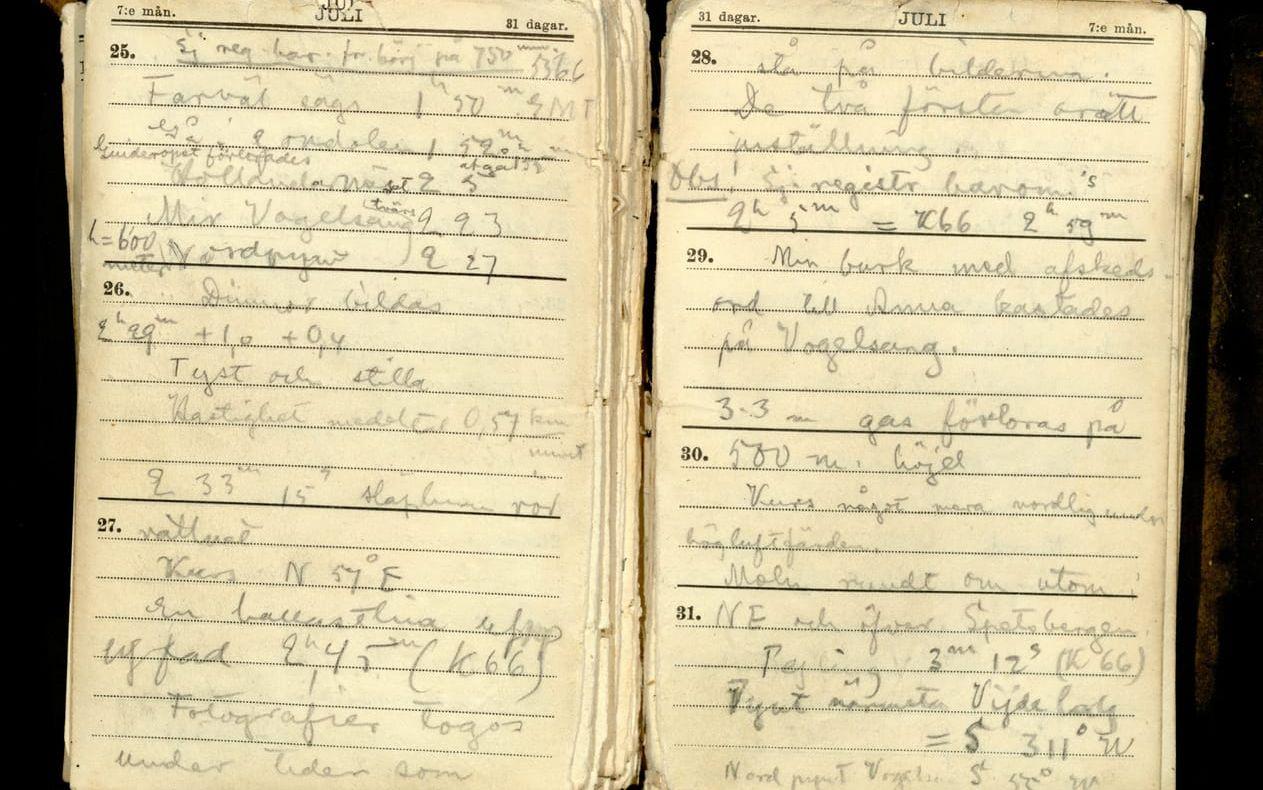 7:e mån. JULI 31 dagar.
25. Ej reg. bar. fr. börj på 750 mm 5366
Farväl sägs 1 h 50 m GMT
1 55 m
Hollandarnäset 2 5
Mir Vogelsang tvärs 2 23
h=600 meter Nordpynt 2 27
26. Dimmor bildas
2 h 29 m +1,0 +0,4
Tyst och stilla
Hastighet medeltal 0,57 km
minut
2 33 m 15 s släplinan vid
27. vattnet
Kurs N 57° E
En ballastlina
2 h, 45 m (K66)
Fotografier togos
under tiden som
31 dagar. JULI 7:e mån.
28. stå på bilderna.
De två första orätt
inställning.
Obs! Ej registr barom.'s
2 h 5 m = K66 2 h 59 m
29. Min burk med afskeds-
ord till Anna kastades
på Vogelsang.
3-3 m gas förloras på
30. 500 m. höjd
Kurs något mera nordlig under
högluftfärden.
Moln rundt om utom
31. NE och öfver Spetsbergen
Pejling 3 m 12 s (K66)
närmsta
= S 311° W
Nordpynt Vogels. S 57° W